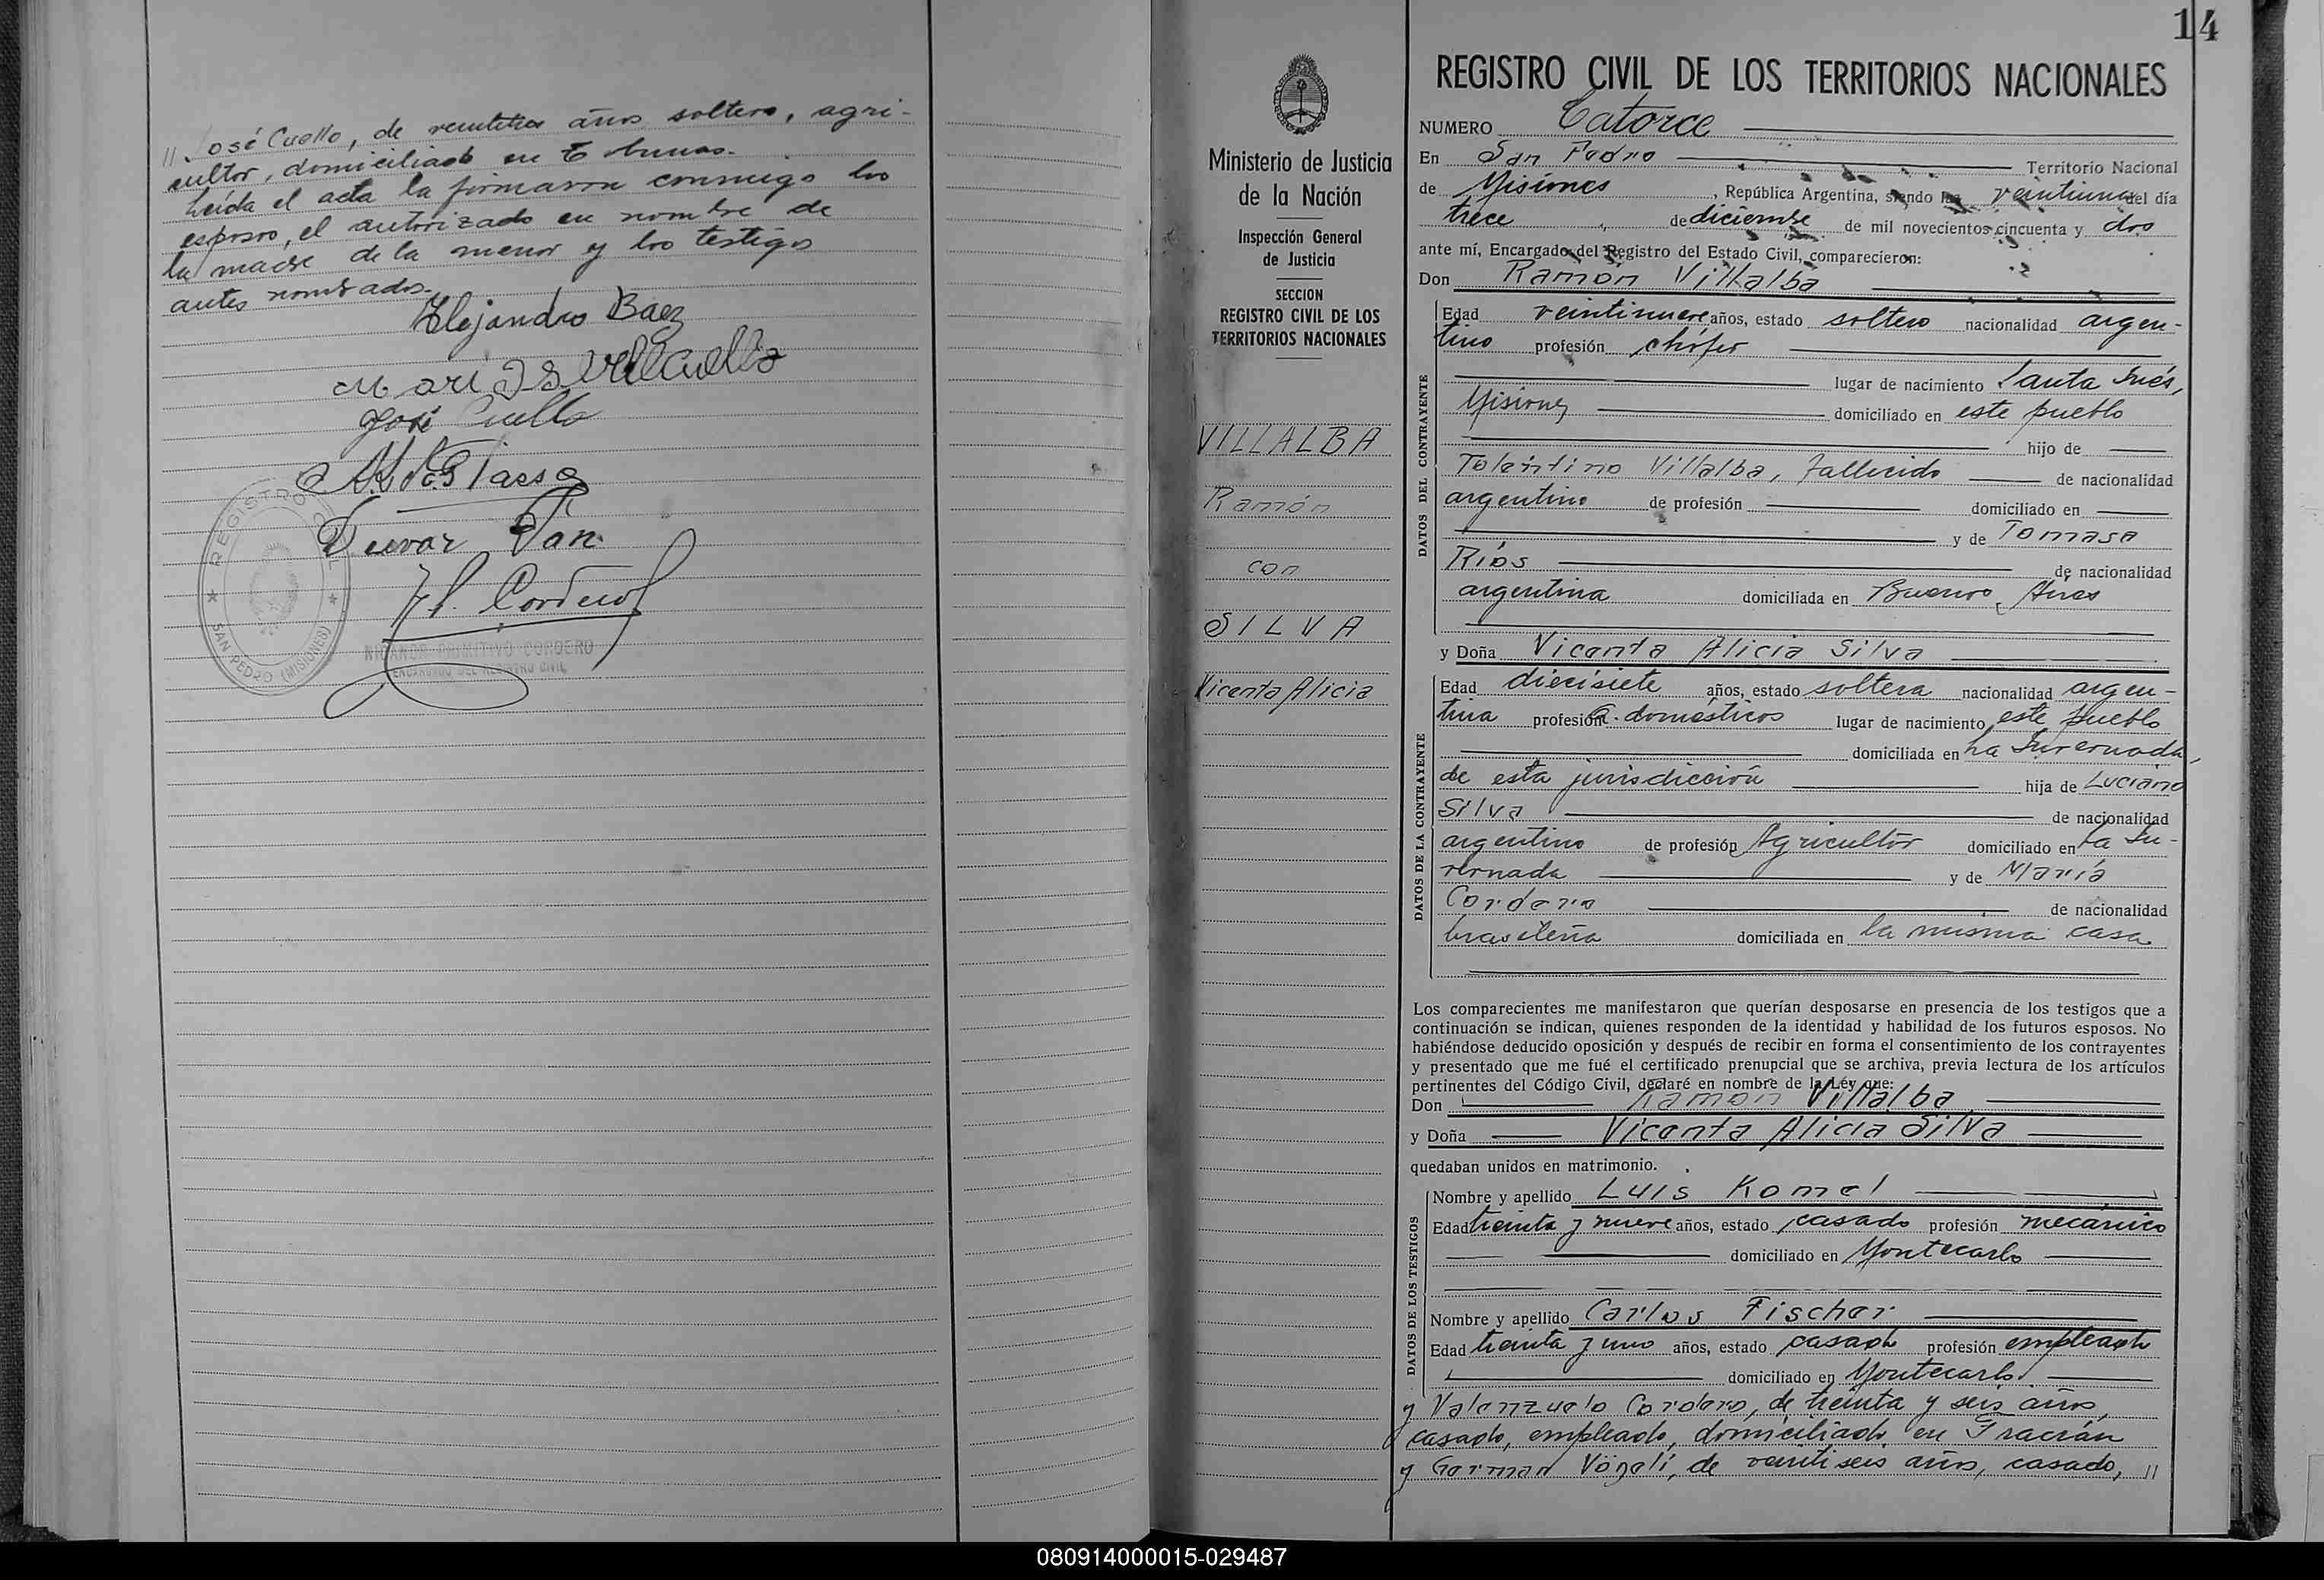 // José Cuello, de años soltero, agri-
cultor, domiciliado en Tobunas.
Leída el acta la firmaron conmigo los
esposos, el autorizado en nombre de
la madre de la menor y los testigos
antes nombrados.
Alejandro Baez
José Cuello
REGISTRO CIVIL
SAN PEDRO (MISIONES)
N. Cordero
NICANOR PRIMITIVO CORDERO
ENCARGADO DEL REGISTRO CIVIL
Ministerio de Justicia
de la Nación
Inspección General
de Justicia
SECCION
REGISTRO CIVIL DE LOS
TERRITORIOS NACIONALES
VILLALBA
Ramón
con
SILVA
Vicenta Alicia
14
REGISTRO CIVIL DE LOS TERRITORIOS NACIONALES
NUMERO Catorce
En San Pedro Territorio Nacional
de Misiones, República Argentina, siendo las veintiuna del día
trece de diciembre de mil novecientos cincuenta y dos
ante mí, Encargado del Registro del Estado Civil, comparecieron:
Don Ramón Villalba
DATOS DEL CONTRAYENTE
Edad veintinueve años, estado soltero nacionalidad argen-
tino profesión chófer
lugar de nacimiento Santa Inés,
Misiones domiciliado en este pueblo
hijo de
Tolentino Villalba, fallecido de nacionalidad
argentino de profesión domiciliado en
y de Tomasa
Ríos de nacionalidad
argentina domiciliada en Buenos Aires
y Doña Vicenta Alicia Silva
DATOS DE LA CONTRAYENTE
Edad diecisiete años, estado soltera nacionalidad argen-
tina profesión q. domésticos lugar de nacimiento este pueblo
domiciliada en La Invernada,
de esta jurisdicción hija de Luciano
Silva de nacionalidad
argentino de profesión Agricultor domiciliado en La In-
vernada y de María
Cordero de nacionalidad
brasileña domiciliada en la misma casa
Los comparecientes me manifestaron que querían desposarse en presencia de los testigos que a
continuación se indican, quienes responden de la identidad y habilidad de los futuros esposos. No
habiéndose deducido oposición y después de recibir en forma el consentimiento de los contrayentes
y presentado que me fué el certificado prenupcial que se archiva, previa lectura de los artículos
pertinentes del Código Civil, declaré en nombre de la Ley que:
Don Ramón Villalba
y Doña Vicenta Alicia Silva
quedaban unidos en matrimonio.
DATOS DE LOS TESTIGOS
Nombre y apellido Luis Komel
Edad treinta y nueve años, estado casado profesión mecánico
domiciliado en Montecarlo
Nombre y apellido Carlos Fischer
Edad treinta y uno años, estado casado profesión empleado
domiciliado en Montecarlo.
y Valenzuelo Cordero, de treinta y seis años,
casado, empleado, domiciliado en Fracrán
y German Vögeli, de veintiseis años, casado, //
080914000015-029487